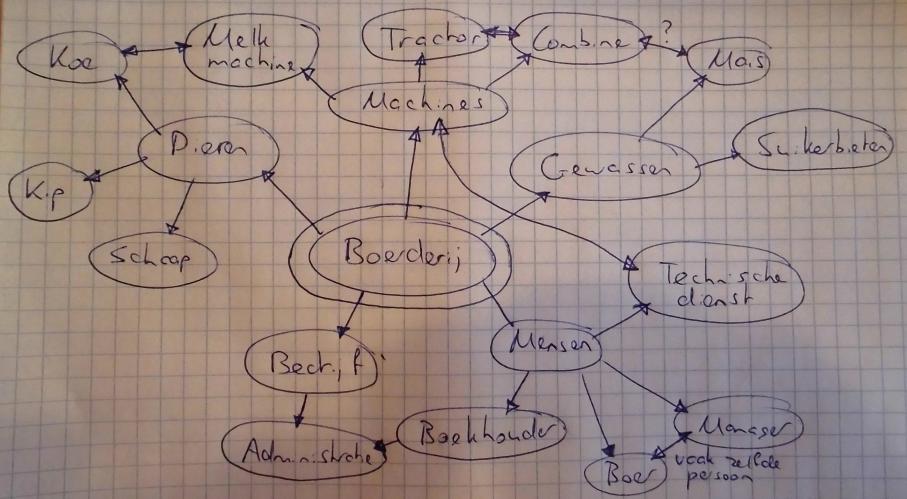 Koe
Melk
machine
Tractor
Combine
?
Mais
Machines
Dieren
Gewassen
Suikerbieten
Kip
Schaap
Boerderij
Technische
dienst
Mensen
Bedrijf
Administratie
Boekhouder
Manager
Boer
vaak zelfde
persoon